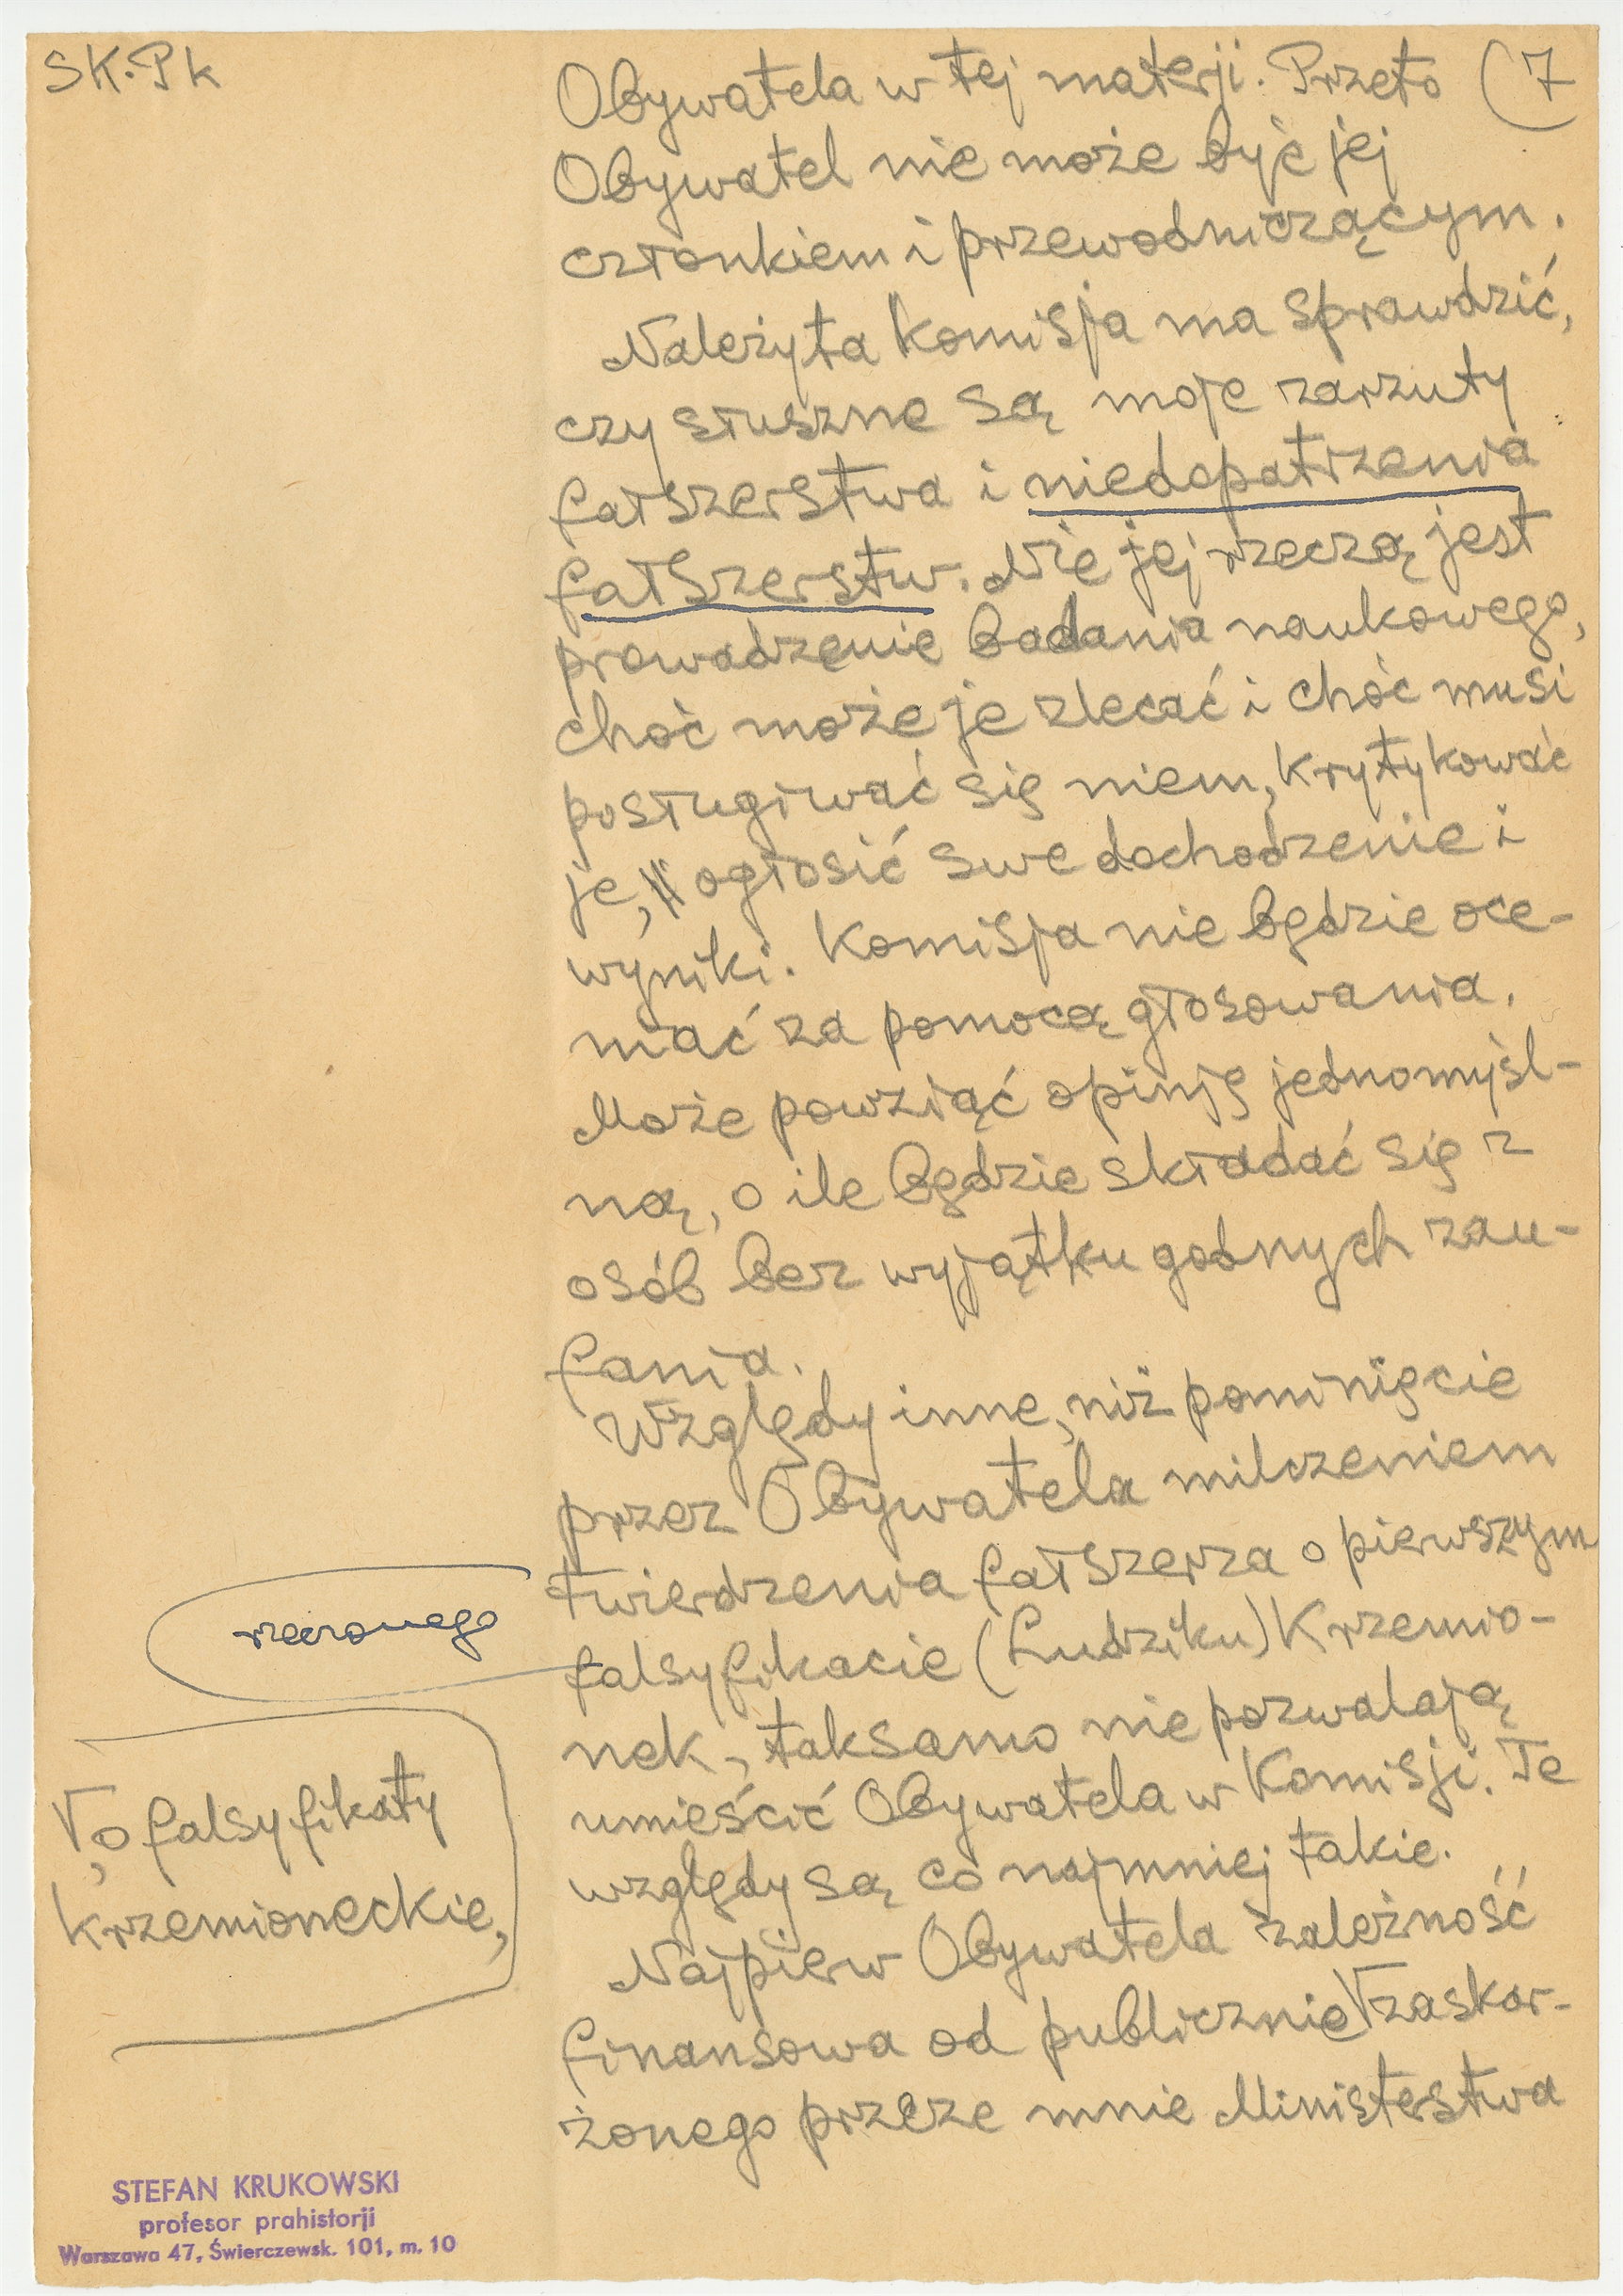 SK.Pk
(7
Obywatela w tej materji. Przeto
Obywatel nie może być jej
członkiem i przewodniczącym.
Należyta Komisja ma sprawdzić,
czy słuszne są moje zarzuty
fałszerstwa i niedopatrzenia
fałszerstw. Nie jej rzeczą jest
prowadzenie badania naukowego,
choć może je zlecać i choć musi
posługiwać się niem, krytykować
je, ogłosić swe dochodzenie i
wyniki. Komisja nie będzie oce-
niać za pomocą głosowania.
Może powziąć opinję jednomyśl-
ną, o ile będzie składać się z
osób bez wyjątku godnych zau-
fania.
Względy inne, niż pominięcie
przez Obywatela milczeniem
twierdzenia fałszerza o pierwszym
rzeczonego
falsyfikacie (Ludziku) Krzemio-
nek, taksamo nie pozwalają
umieścić Obywatela w Komisji. Te
względy są co najmniej takie.
Najpierw Obywatela zależność
finansowa od publicznie zaskar-
żonego przeze mnie Ministerstwa
, o falsyfikaty
krzemioneckie,
STEFAN KRUKOWSKI
profesor prahistorji
Warszawa 47, Świerczewsk. 101, m. 10